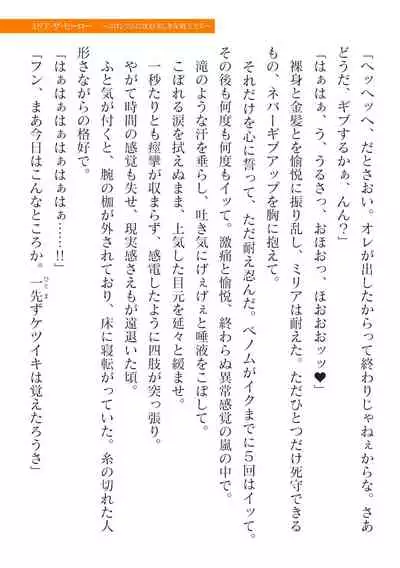 ミリア・ザ・ヒーロー
「ヘッヘッヘ、だとさおい。オレが出したからって終わりじゃねぇからな。さあ
どうだ、ギブするかぁ、んん？」
「はぁはぁ、う、うるさっ、おほおっ、ほおおおッッ♥」
裸身と金髪とを愉悦に振り乱し、ミリアは耐えた。ただひとつだけ死守できる
もの、ネバーギブアップを胸に抱えて。
それだけを心に誓って、ただ耐え忍んだ。ペノムがイクまでに５回はイッて。
その後も何度も何度もイッて。激痛と愉悦、終わらぬ異常感覚の嵐の中で。
滝のような汗を垂らし、吐き気にげぇげぇと唾液をこぼして。
こぼれる涙を拭えぬまま、上気した目元を延々と緩ませ。
一秒たりとも痙攣が収まらず、感電したように四肢が突っ張り。
やがて時間の感覚も失せ、現実感さえもが遠退いた頃。
ふと気が付くと、腕の枷が外されており、床に寝転がっていた。糸の切れた人
形さながらの格好で。
「はぁはぁはぁはぁはぁはぁ……!!」
「フン、まあ今日はこんなところか。一先ずケツイキは覚えたろうさ」
ひとま